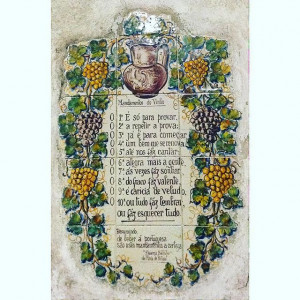 Mandamentos do Vinho
O 1º É só para provar.
O 2º a repetir a prova.
O 3º já é para começar
O 4º um bem que se renova
O 5º até nos faz cantar.
O 6º alegra mais a gente
O 7º às vezes faz sonhar.
O 8º do fraco faz valente.
O 9º é carícia de veludo,
O 10º ou tudo faz lembrar
ou faz esquecer tudo.
de beber á portuguesa
não